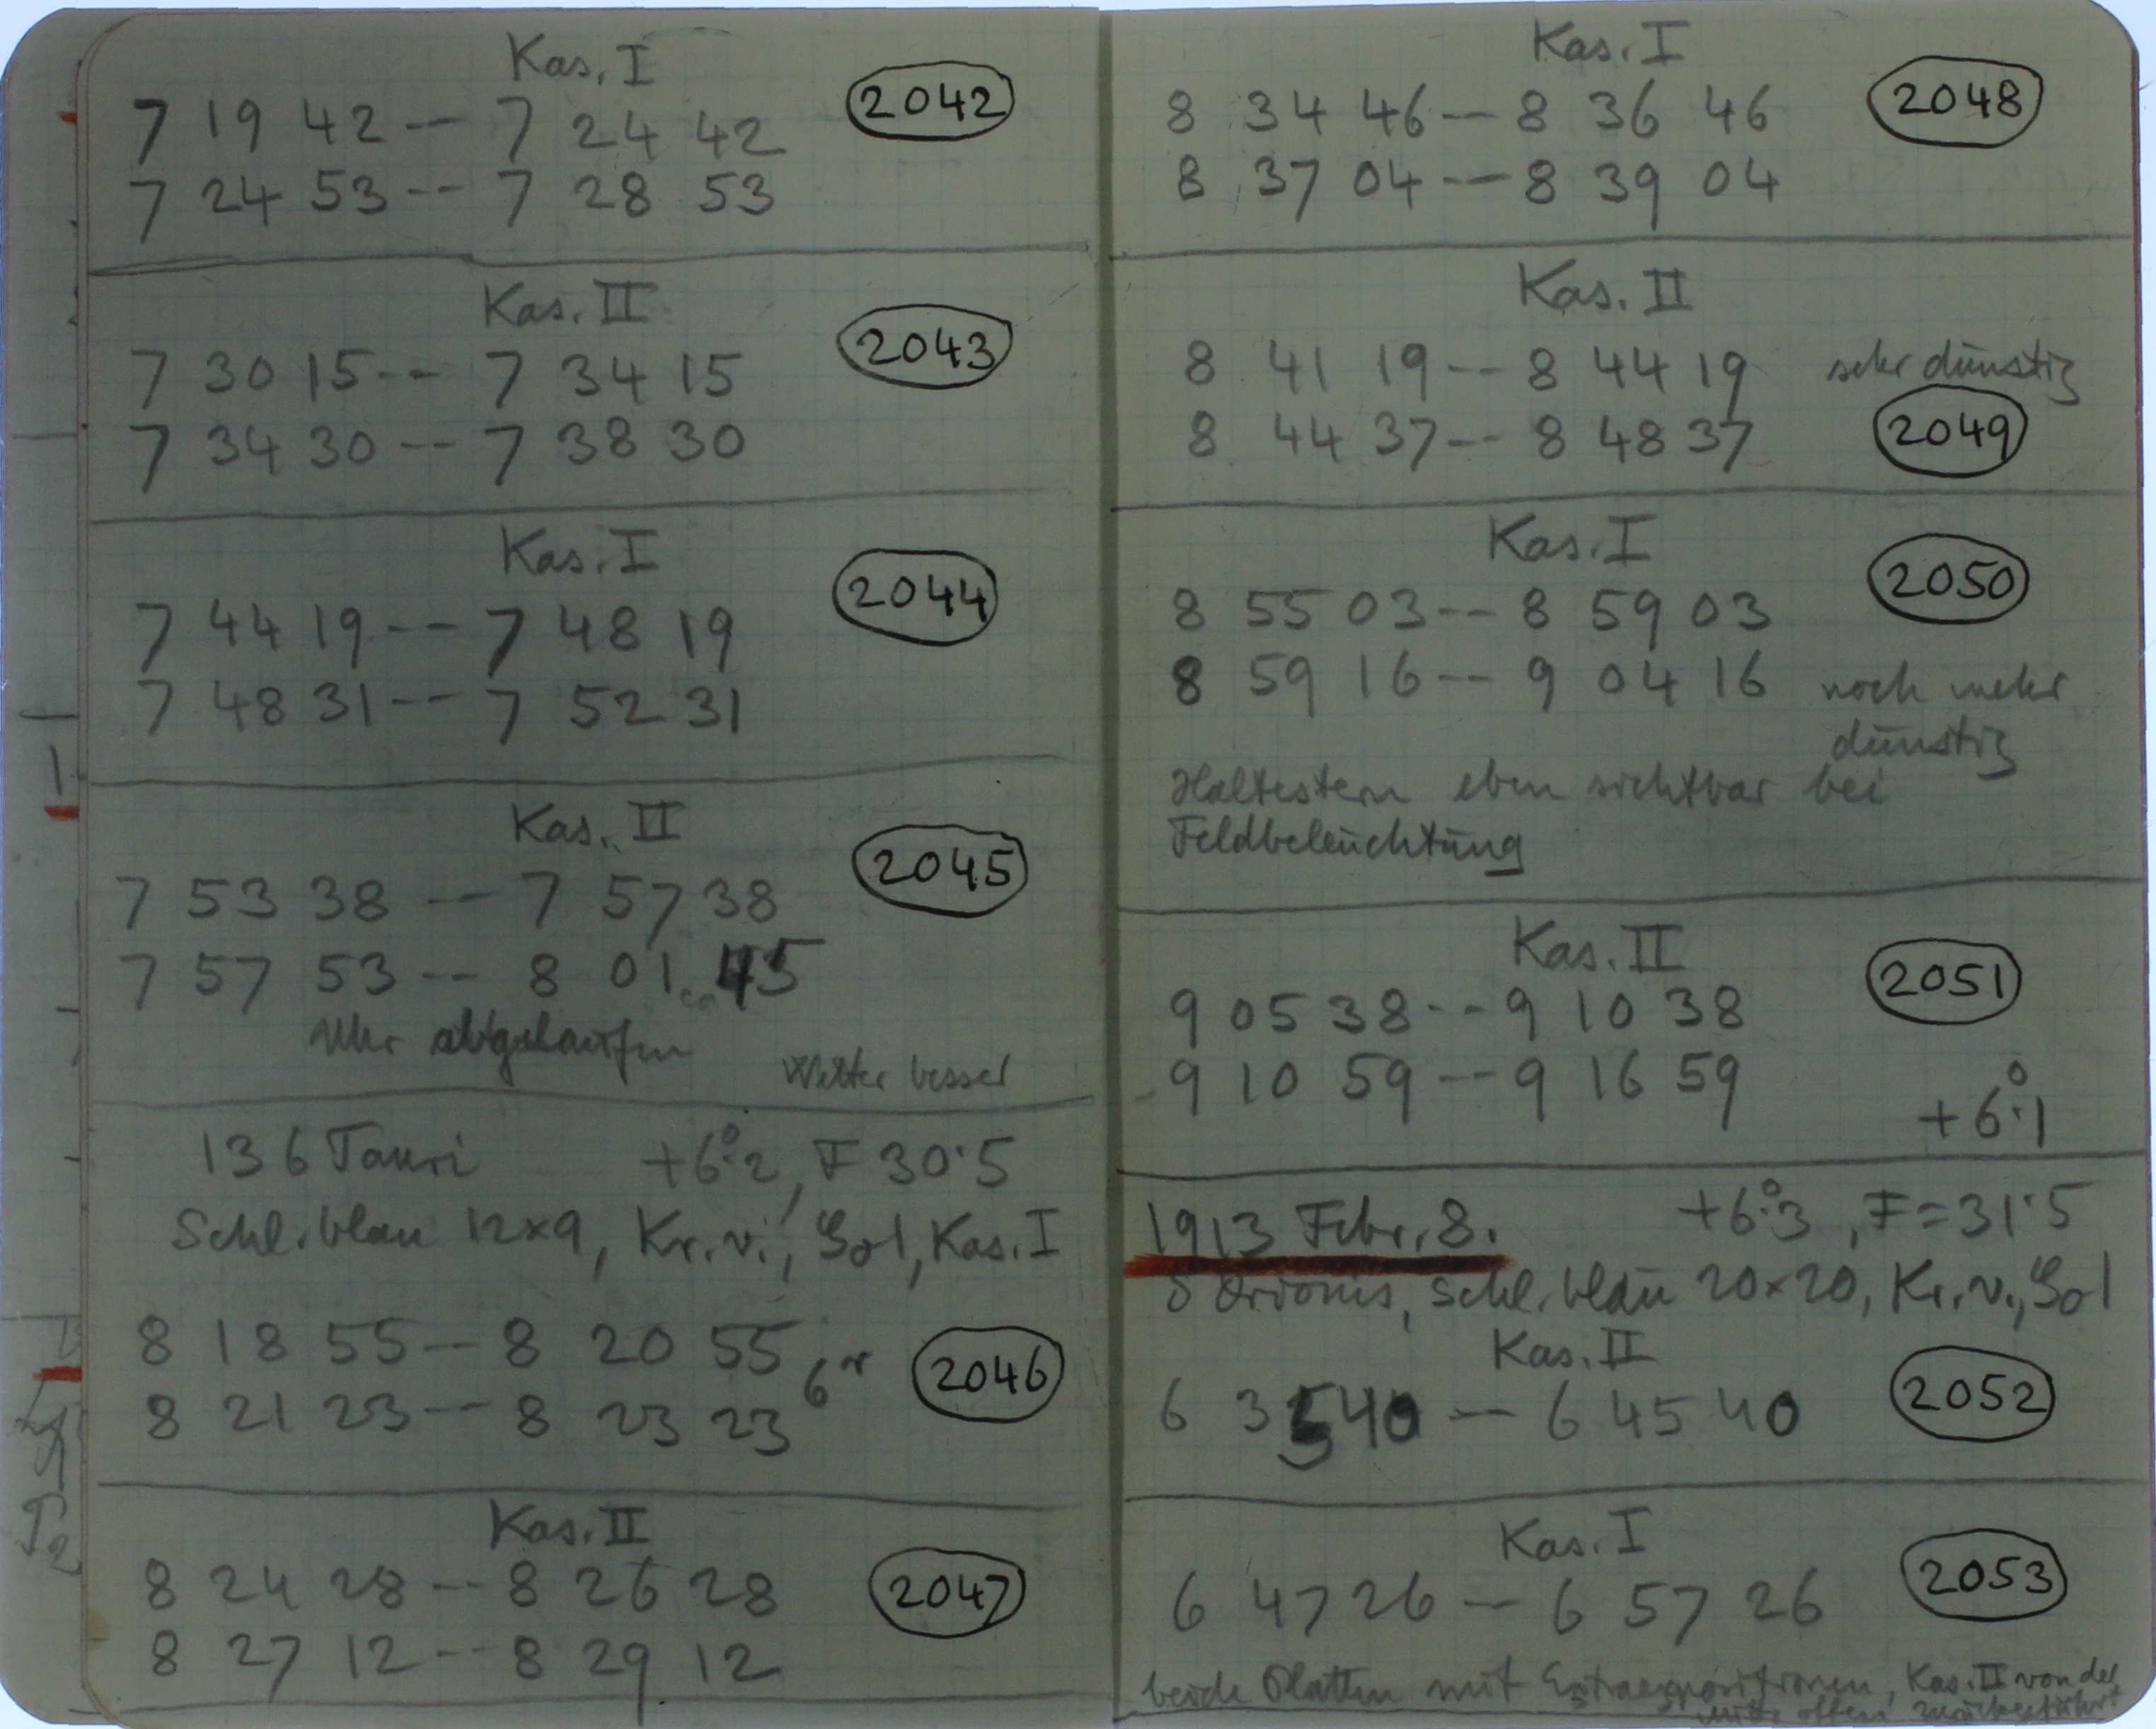 Kas. I
7 19 42 -- 7 24 42 2042
7 24 53 -- 7 28 53
Kas. II
7 30 15 -- 7 34 15 2043
7 34 30 -- 7 38 30
Kas. I
7 44 19 -- 7 48 19 2044
7 48 31 -- 7 52 31
Kas. II
7 53 38 -- 7 57 38 2045
7 57 53 -- 8 01 ca 45
Uhr abgelaufen
Wetter besser
136 Tauri +6°.2, F 30.5
Schl. blau 12x9, Kr. v., Kas. I
8 18 55 -- 8 20 55
8 21 23 -- 8 23 23 2046
Kas. II
8 24 28 -- 8 26 28 2047
8 27 12 -- 8 29 12
Kas. I
8 34 46 -- 8 36 46 2048
8 37 04 -- 8 39 04
Kas. II
8 41 19 -- 8 44 19 sehr dunstig
8 44 37 -- 8 48 37 2049
Kas. I
8 55 03 -- 8 59 03 2050
8 59 16 -- 9 04 16 noch mehr
dunstig
Haltestern eben sichtbar bei
Feldbeleuchtung
Kas. II
9 05 38 -- 9 10 38 2051
9 10 59 -- 9 16 59
+6°.1
1913 Febr. 8. +6°.3, F=31.5
δ Orionis, Schl. blau 20x20, Kr. v.,
Kas. II
6 35 40 -- 6 45 40 2052
Kas. I
6 47 26 -- 6 57 26 2053
beide Platten mit Extraexpositionen, Kas. II von der
Mitte offen zurückgeführt